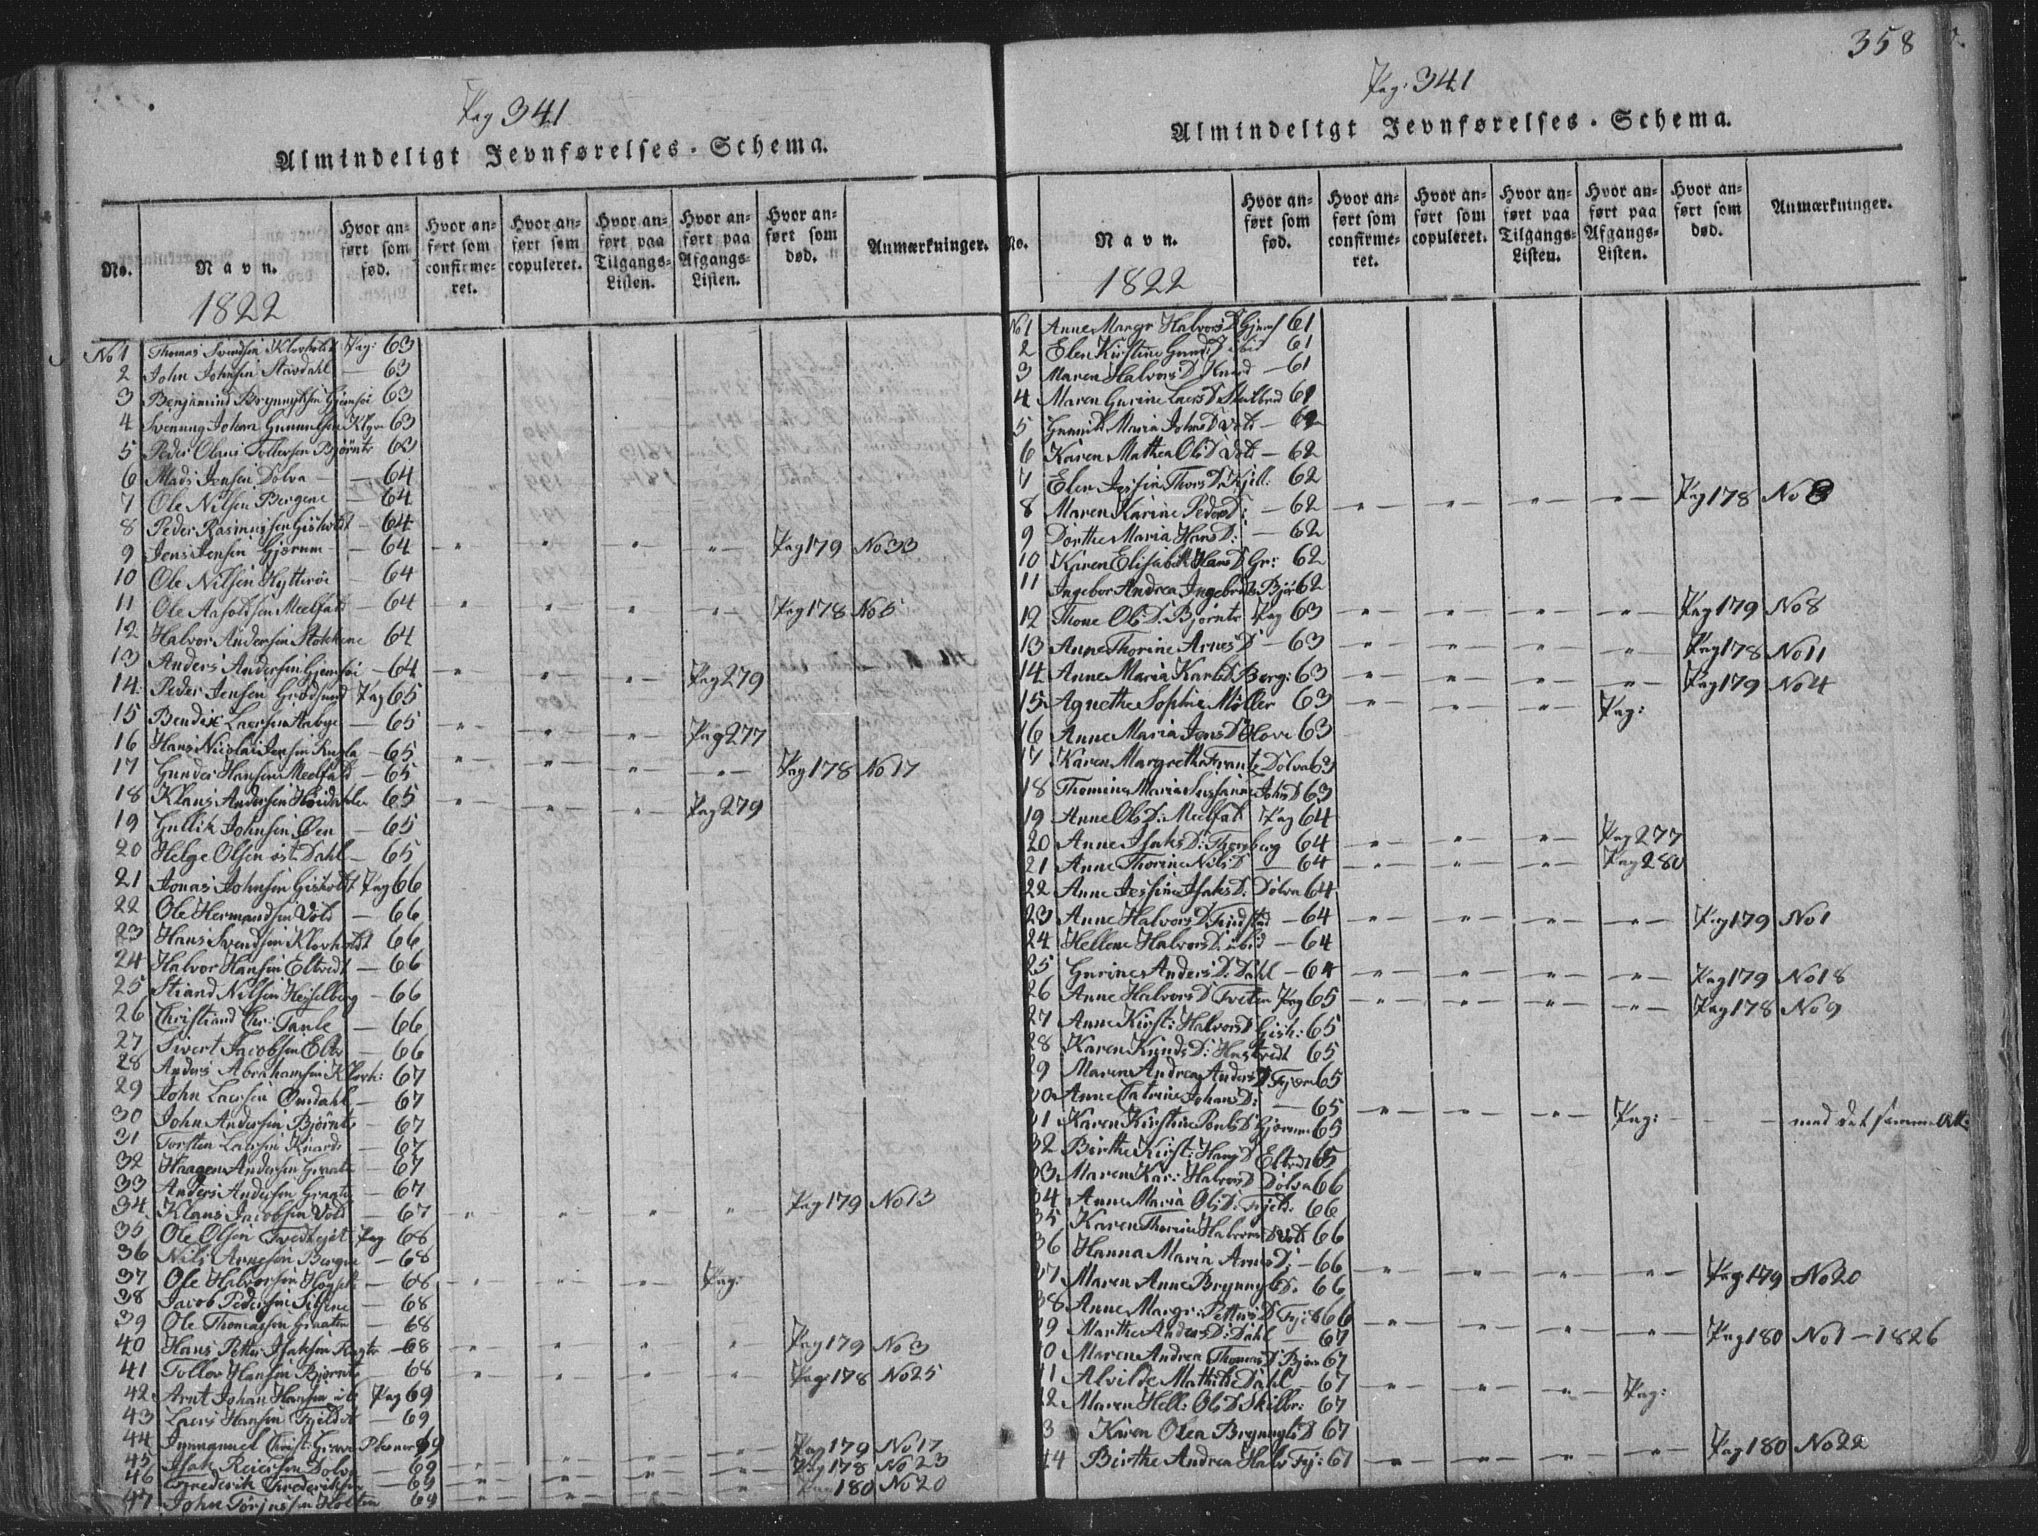 358
Pag 341
Almindeligt Jevnførelses-Schema.
No.
Navn.
Hvor anført som fød.
Hvor anført som confirmeret.
Hvor anført som copuleret.
Hvor anført paa Tilgangs-Listen.
Hvor anført paa Afgangs-Listen.
Hvor anført som død.
Anmærkninger.
1822
No 1 Thomas Svendsen Klovholdt Pag: 63
2 John Johnsen Stavdahl — 63
3 Benjamin Brynnylsen Gjemsøi 63
4 Svenung Johan Gunnulsen 63
5 Peder Olaus Tollevsen Bjørntv 63
6 Mads Jensen Dolva — 64
7 Ole Nilsen Bergene — 64
8 Peder Rasmussen Gisholdt — 64
9 Jens Jensen Gjærum — 64 - - - - Pag 179 No 33
10 Ole Nilsen Hytterøe — 64
11 Ole Meelfald — 64 - - - - Pag 178 No 5
12 Halvor Andersen Stokkene 64
13 Anders Andersen Gjemsøi — 64 - - - Pag 279
14 Peder Jensen Grødsund Pag 65
15 Bendix Laersen Aabye — 65 - - - Pag 277
16 Hans Nicolai Jensen — 65 - - - - Pag 178 No 17
17 Gunder Hansen Meelfald — 65
18 Klaus Andersen Høidahlen 65 - - - Pag 279
19 Gullik Johnsen Øen — 65
20 Helge Olsen østre Dahl — 65
21 Jonas Johnsen Gisholdt Pag 66
22 Ole Hermandsen Vold — 66
23 Hans Svendsen Klovholdt 66
24 Halvor Hansen Eltvedt — 66
25 Stiand Nilsen Hesselberg — 66
26 Christiand Chr: — 66
27 Sivert Jacobsen Eltv — 66
28 Anders Abrahamsen Klovh: 67
29 John Laersen Omdahl — 67
30 John Andersen Bjørntv — 67
31 Torsten Laersen Knards — 67
32 Haagen Andersen Graaten — 67
33 Anders Andersen Graaten — 67
34 Klaus Jacobsen Vold — 67 - - - - Pag 179 No 13
35 Ole Olsen Pag 68
36 Nils Arnesen Bergne — 68
37 Ole Halvorsen — 68 - - - Pag:
38 Jacob Pedersen — 68
39 Ole Thomassen Graaten — 68
40 Hans Petter Isaksen — 68 - - - - Pag 179 No 3
41 Tollov Hansen Bjørntv 68 - - - - Pag 178 No 25
42 Arnt Johan Hansen ib Pag 69
43 Laers Hansen Fjeldet — 69
44 Immanuel Christ: 69 - - - - Pag 179 No 17
45 Isak Reiersen Dolva — 69 - - - - Pag 178 No 23
46 Frederik Frederiksen — 69 - - - - Pag 180 No 20
47 John Torjussen Holten 69
Pag: 341
Almindeligt Jevnførelses-Schema.
No.
Navn.
Hvor anført som fød.
Hvor anført som confirmeret.
Hvor anført som copuleret.
Hvor anført paa Tilgangs-Listen.
Hvor anført paa Afgangs-Listen.
Hvor anført som død.
Anmærkninger.
1822
No 1 Anne Margr Halvors D Gjems 61
2 Elen Kirstine D ibid 61
3 Maren Halvors D Knard — 61
4 Maren Gurine Laers D Skilbred 61
5 Gunnild Maria Johns D Vold — 62
6 Karen Mathea Ols D Vold — 62
7 Elen Jessine Thors D: Kjell: 62
8 Maren Karine Peders D: — 62 - - - - Pag 178 No 8
9 Dorthe Maria Hans D: — 62
10 Karen Elisabeth Hans D Gr: 62
11 Ingebor Andrea Ingebrets Bjør 62
12 Thone Ols D: Bjørntv Pag 63 - - - - Pag 179 No 8
13 Anne Thorine Arnes D — 63 - - - - Pag 178 No 11
14 Anne Maria Karls D Berg: 63 - - - - Pag 179 No 4
15 Agnethe Sophie Møller 63 - - - Pag:
16 Anne Maria Jens D Hove 63
17 Karen Margrethe Frants Dolva 63
18 Thomine Maria Susanne Johs D 63
19 Anne Ols D: Meelfald Pag 64
20 Anne Isaks D: Thorsberg 64 - - - Pag 277
21 Anne Thorine Nils D — 64 - - - Pag 280
22 Anne Jessine Isaks D: Dolva 64
23 Anne Halvors D: Findstad — 64 - - - - Pag 179 No 1
24 Hellene Halvors D: ibid — 64
25 Gurine Anders D: Dahl — 64 - - - - Pag 179 No 18
26 Anne Halvors D Tveten Pag 65 - - - - Pag 178 No 9
27 Anne Kirst: Halvors D Gish: 65
28 Karen Knuds D: Hastvedt 65
29 Maren Andrea Anders D 65
30 Anne Catrine Johans D: — 65 - - - Pag: — med det samme Alt:
31 Karen Kirstine Pouls D Gjærum 65
32 Birthe Kirst: Hans D Eltvedt 65
33 Maren Kar: Halvors D Dolva 66
34 Anne Maria Ols D: Fjeld: 66
35 Karen Thorine Halvors D Vold 66
36 Hanna Maria Arnes D; — 66
37 Maren Anne Brynnyls D. 66 - - - - Pag 179 No 20
38 Anne Margr: Petters D Fjeld 66
39 Marthe Anders D: Dahl — 67 - - - - Pag 180 No 1 — 1826
40 Maren Andrea Thomas D Bjørn 67
41 Alvilde Mathilde Dahl — 67 - - - Pag:
42 Maren Hell: Ols D Skilbr: 67
43 Karen Olea Brynnyls D 67
44 Birthe Andrea Halv Fj: 67 - - - - Pag 180 No 22